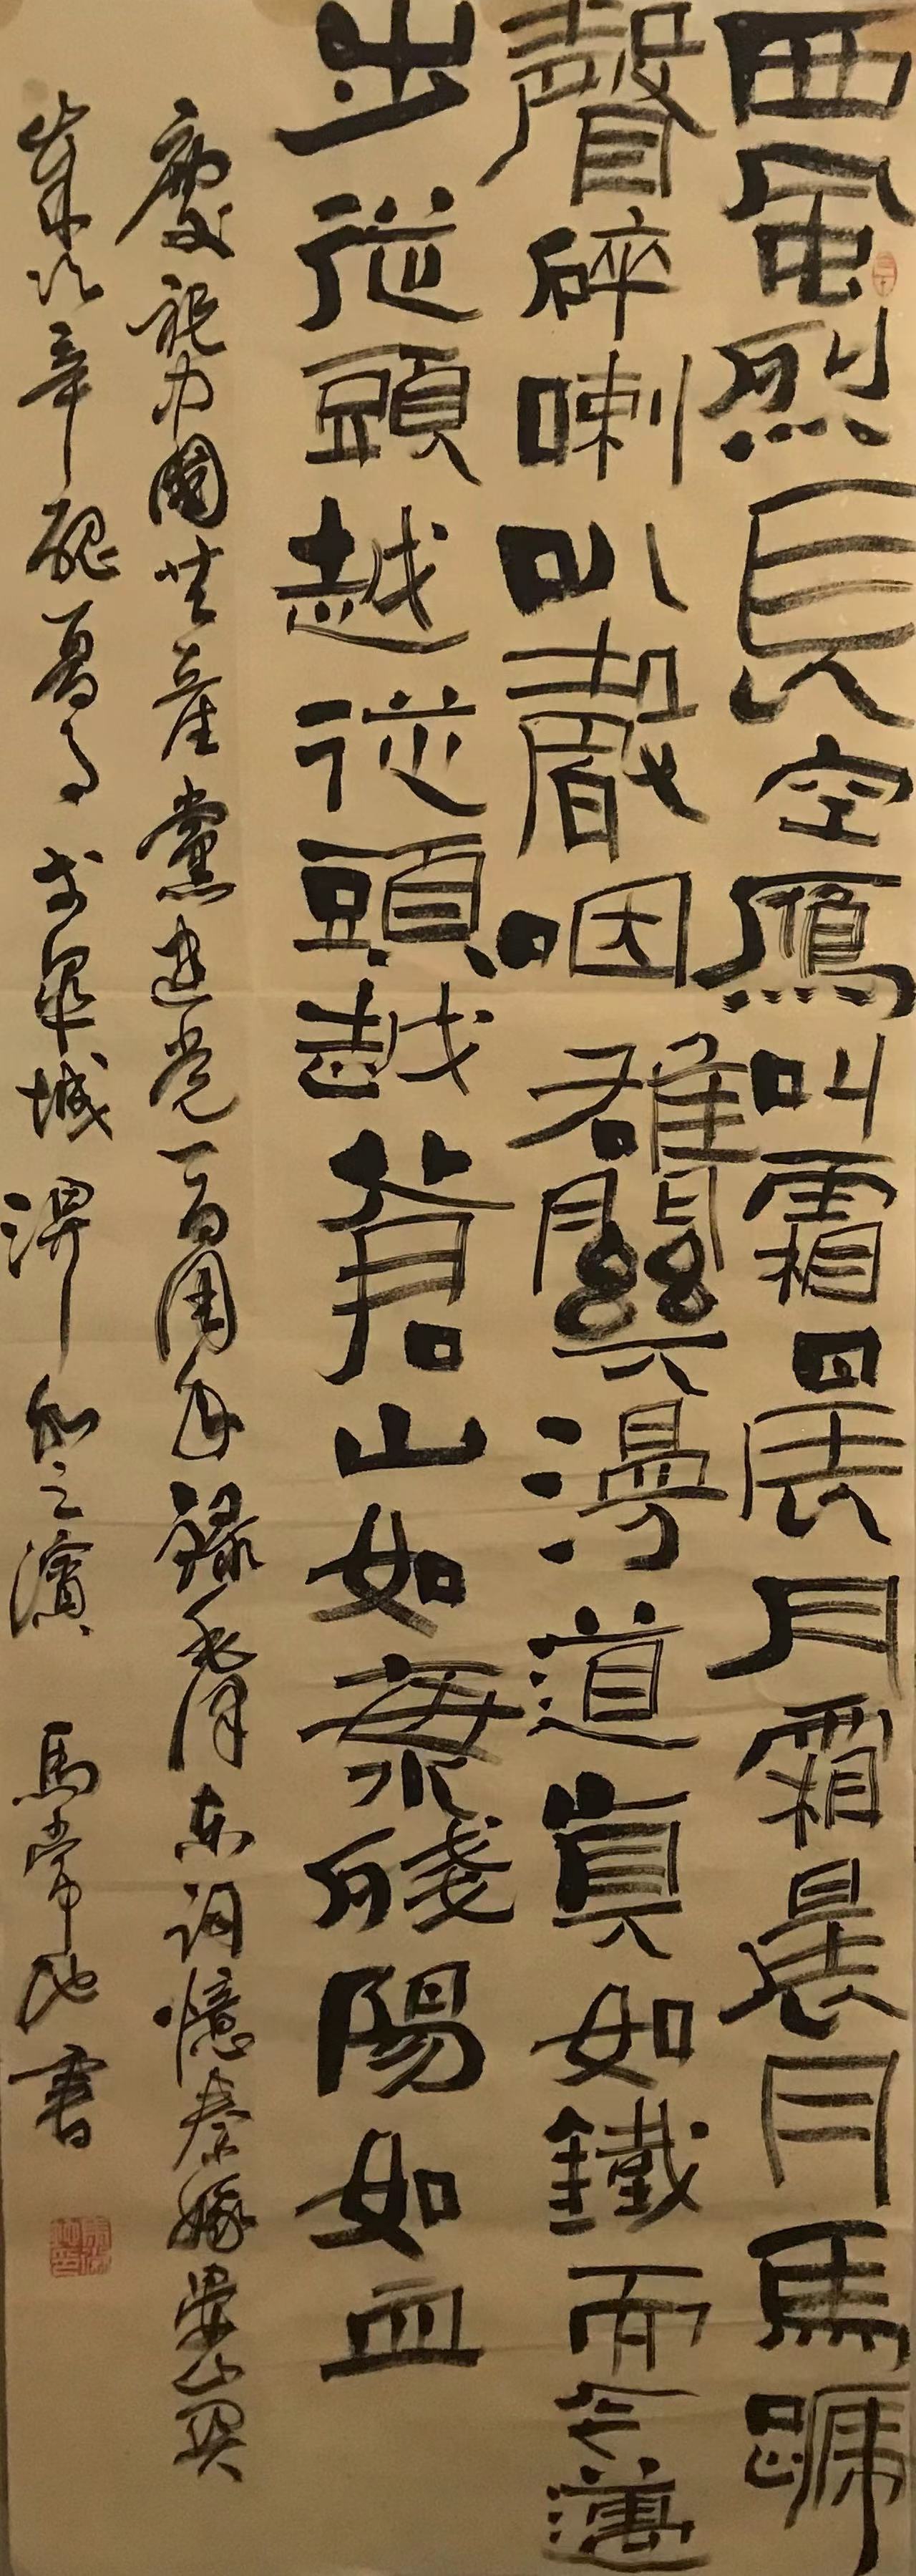 西風烈長空鴈叫霜晨月霜晨月馬蹄
聲碎喇叭聲咽雄關漫道眞如鐵而今邁
步從頭越從頭越蒼山如海殘陽如血
慶祝中國共產黨建党一百周年録毛澤东词憶秦娥婁山關
歲次辛醜夏月於皋城淠河之濱 馬常池書